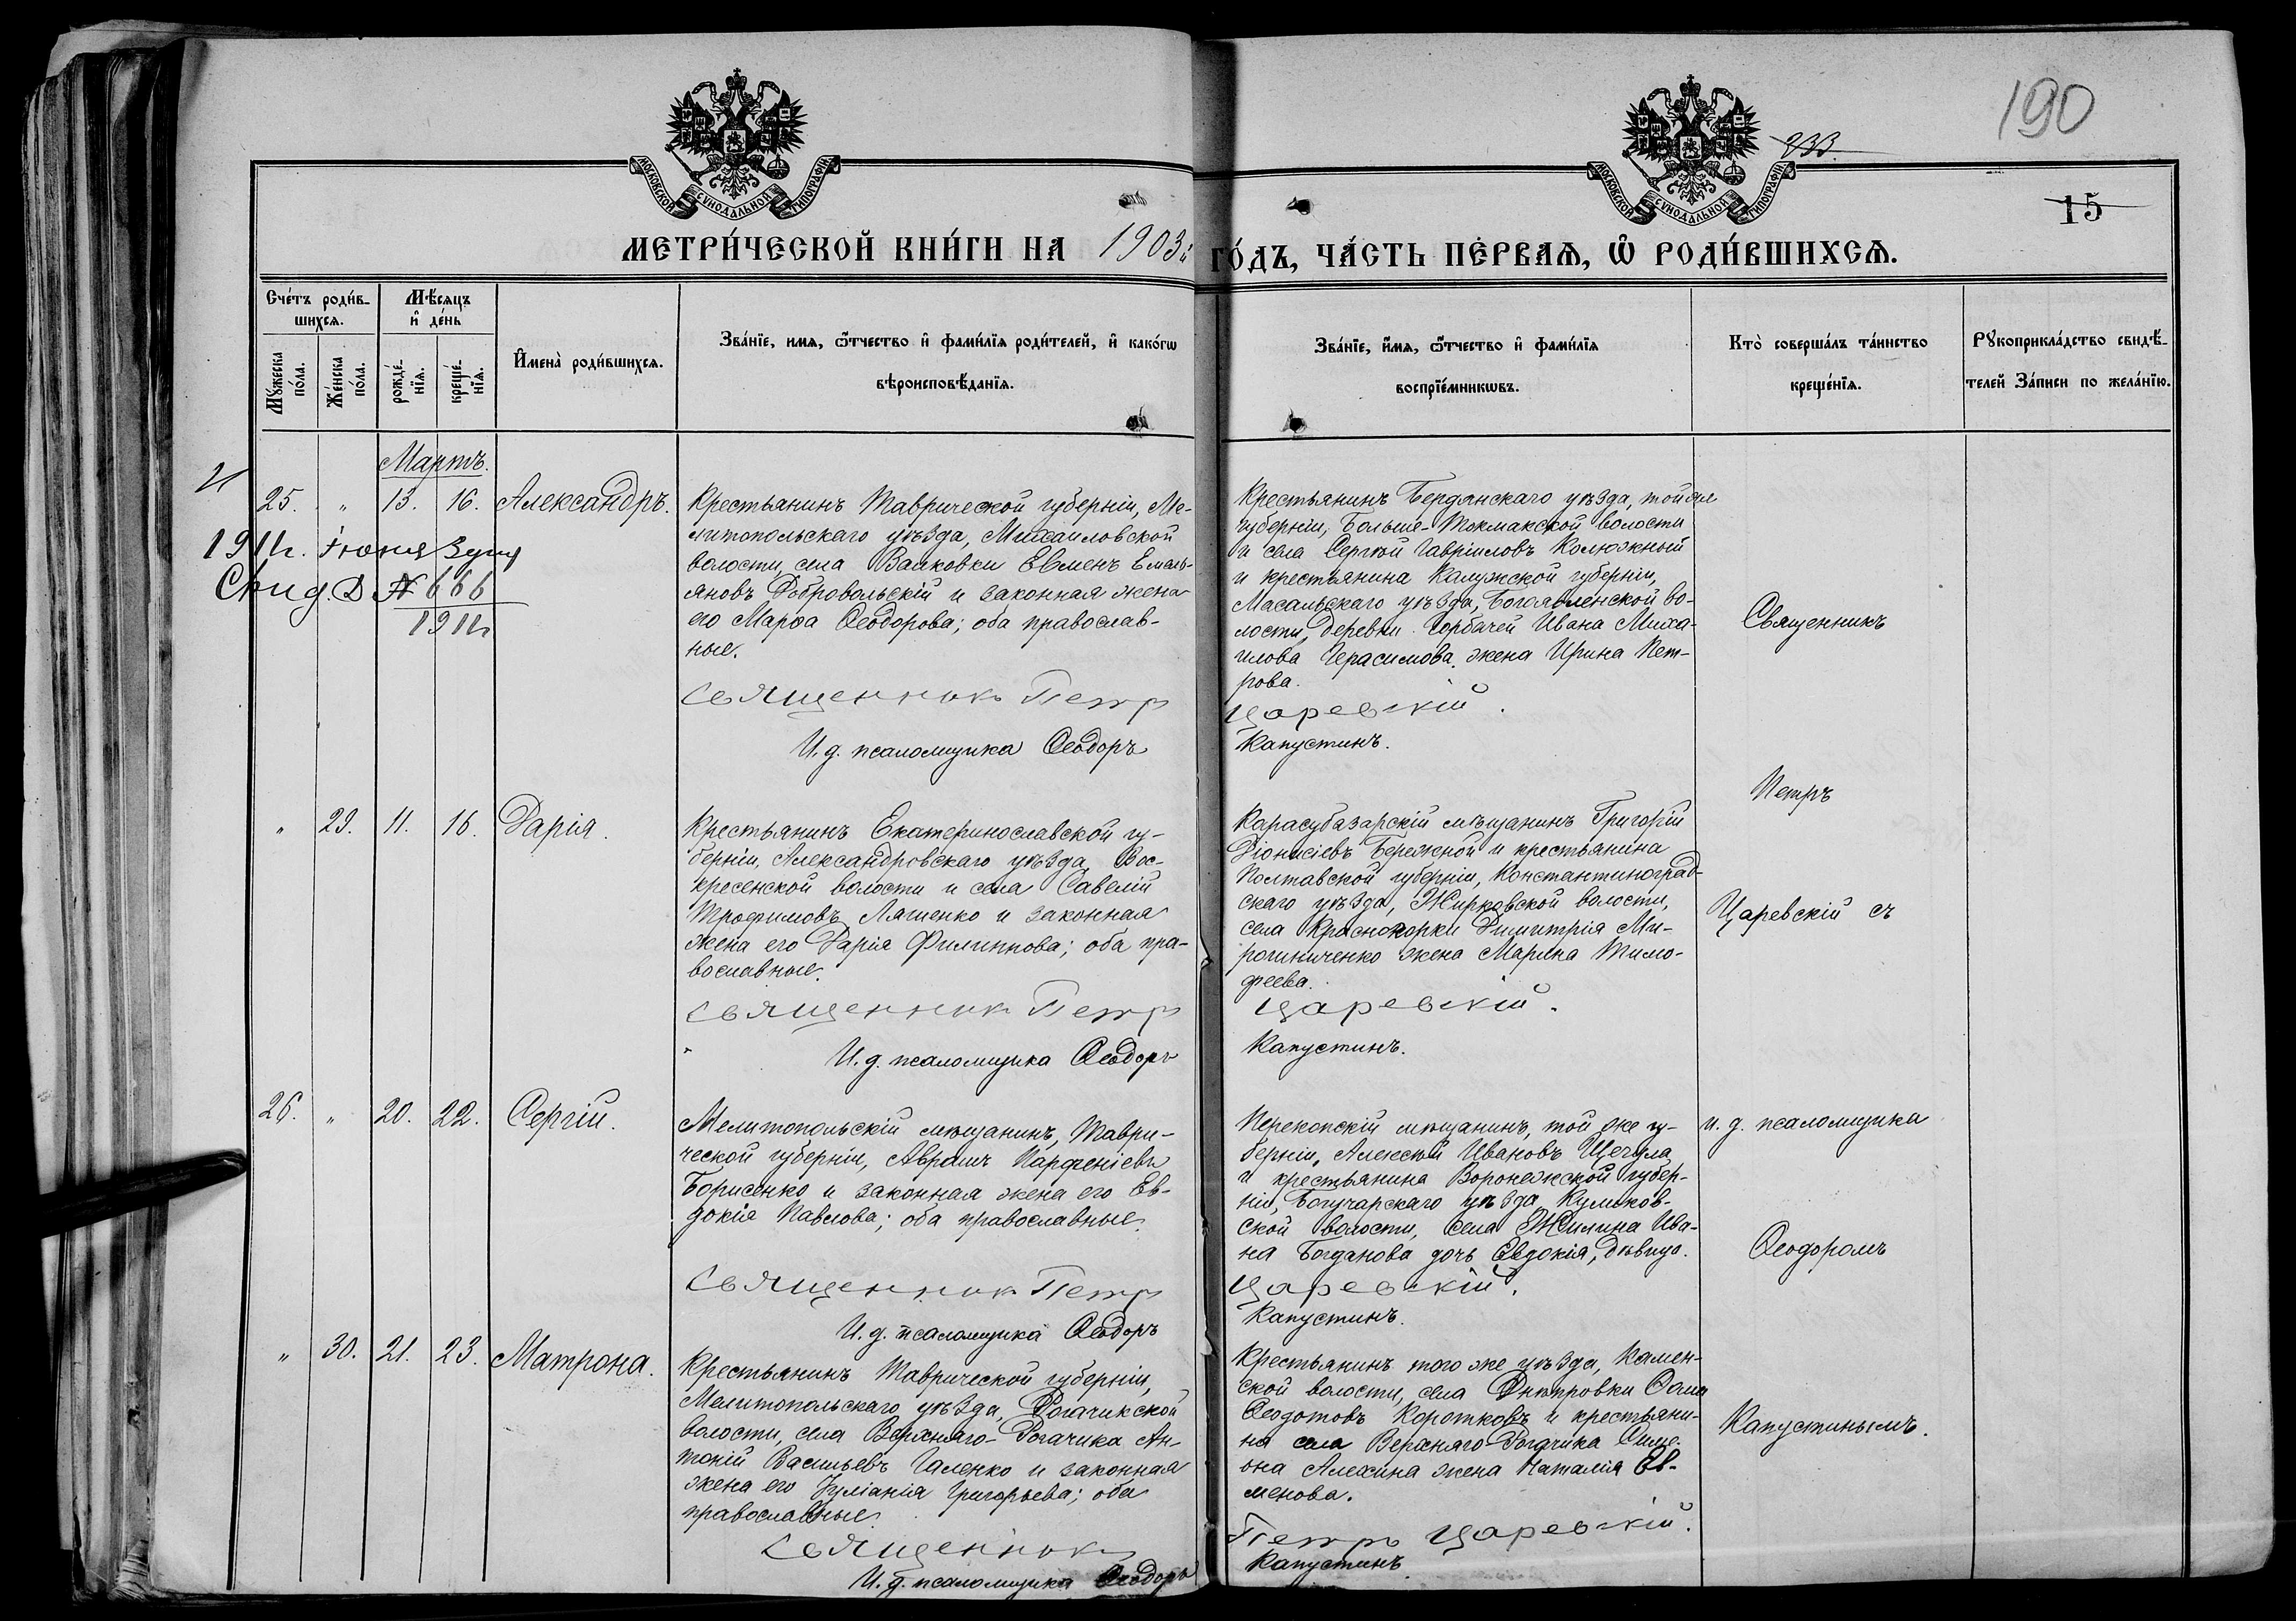 190
233.
15
МОСКОВСКОЙ СѴНОДАЛЬНОЙ ТИПОГРАФІИ
МОСКОВСКОЙ СѴНОДАЛЬНОЙ ТИПОГРАФІИ
МЕТРИ́ЧЕСКОЙ КНИ́ГИ НА 1903й ГО́ДЪ, ЧА́СТЬ ПЕ́РВАѦ, Ѡ РОДИ́ВШИХСѦ.
Сче́тъ роди́в-
шихсѧ.
Мꙋ́жеска
по́ла.
Же́нска
по́ла.
Мѣ́сѧцъ
и҆ де́нь
рожде́-
нїѧ.
креще́-
нїѧ.
И҆мена̀ роди́вшихсѧ.
Зва́нїе, имѧ, ѻ҆́тчество и҆ фами́лїѧ роди́телей, и҆ како́гѡ
вѣроисповѣ́данїѧ.
Зва́нїе, и҆́мѧ, ѻ҆́тчество и҆ фами́лїѧ
воспрїе́мникѡвъ.
Кто̀ соверша́лъ та́инство
креще́нїѧ.
Рꙋкоприкла́дство свидѣ́-
телей За́писи по жела́нїю.
Мартъ.
25. " 13. 16. Александръ.
1911г. Іюня 3 дня
Свид. Д № 666
1911г
Крестьянинъ Таврической губерніи, Ме-
литопольскаго уѣзда, Михаиловской
волости, села Валковки Евменъ Емель-
яновъ Добровольскій и законная жена
его Марѳа Ѳеодорова; оба православ-
ные.
Священникъ Петръ
И. д. псаломщика Ѳеодоръ
Крестьянинъ Бердянскаго уѣзда, той же
губерніи, Больше-Токмакской волости
и села Сергѣй Гавріиловъ Колюжный
и крестьянина Калужской губерніи,
Масальскаго уѣзда, Богоявленской во-
лости, деревни Горбачей Ивана Миха-
илова Герасимова жена Ирина Пет-
рова.
Царевскій.
Капустинъ.
Священникъ
Петръ
Царевскій съ
и. д. псаломщика
Ѳеодоромъ
Капустинымъ.
" 29. 11. 16. Дарія.
Крестьянинъ Екатеринославской гу-
берніи, Александровскаго уѣзда, Вос-
кресенской волости и села Савелій
Трофимовъ Ляшенко и законная
жена его Дарія Филиппова; оба пра-
вославные.
Священникъ Петръ
И. д. псаломщика Ѳеодоръ
Карасубазарскій мѣщанинъ Григорій
Діонисіевъ Бережной и крестьянина
Полтавской губерніи, Константиноград-
скаго уѣзда, Жирковской волости,
села Краснокорки Димитрія Ми-
рошниченко жена Марина Тимо-
феева.
Царевскій.
Капустинъ.
26. " 20. 22. Сергій.
Мелитопольскій мѣщанинъ, Таври-
ческой губерніи, Аврамъ Парфеніевъ
Борисенко и законная жена его Ев-
докія Павлова; оба православные.
Священникъ Петръ
И. д. псаломщика Ѳеодоръ
Перекопскій мѣщанинъ, той же гу-
берніи, Алексѣй Ивановъ Щегула
и крестьянина Воронежской губер-
ніи, Богучарскаго уѣзда, Куликов-
ской волости, села Жилина Ива-
на Богданова дочь Евдокія, дѣвица.
Царевскій.
Капустинъ.
" 30. 21. 23. Матрона.
Крестьянинъ Таврической губерніи,
Мелитопольскаго уѣзда, Рогачикской
волости, села Верхняго-Рогачика Ан-
тоній Васильевъ Галенко и законная
жена его Іуліанія Григорьева; оба
православные.
Священникъ
И. д. псаломщика Ѳеодоръ
Крестьянинъ того же уѣзда, Камен-
ской волости, села Днѣпровки Ѳома
Ѳеодотовъ Коротковъ и крестьяни-
на села Верхняго-Рогачика Симе-
она Алехина жена Наталія Ев-
менова.
Петръ Царевскій.
Капустинъ.